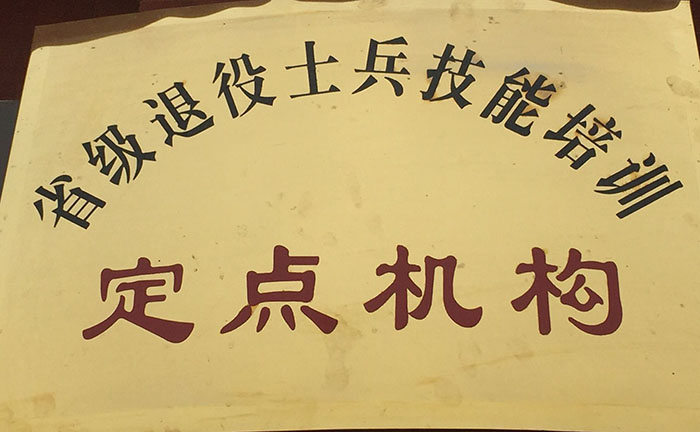 省级退役士兵技能培训
定点机构